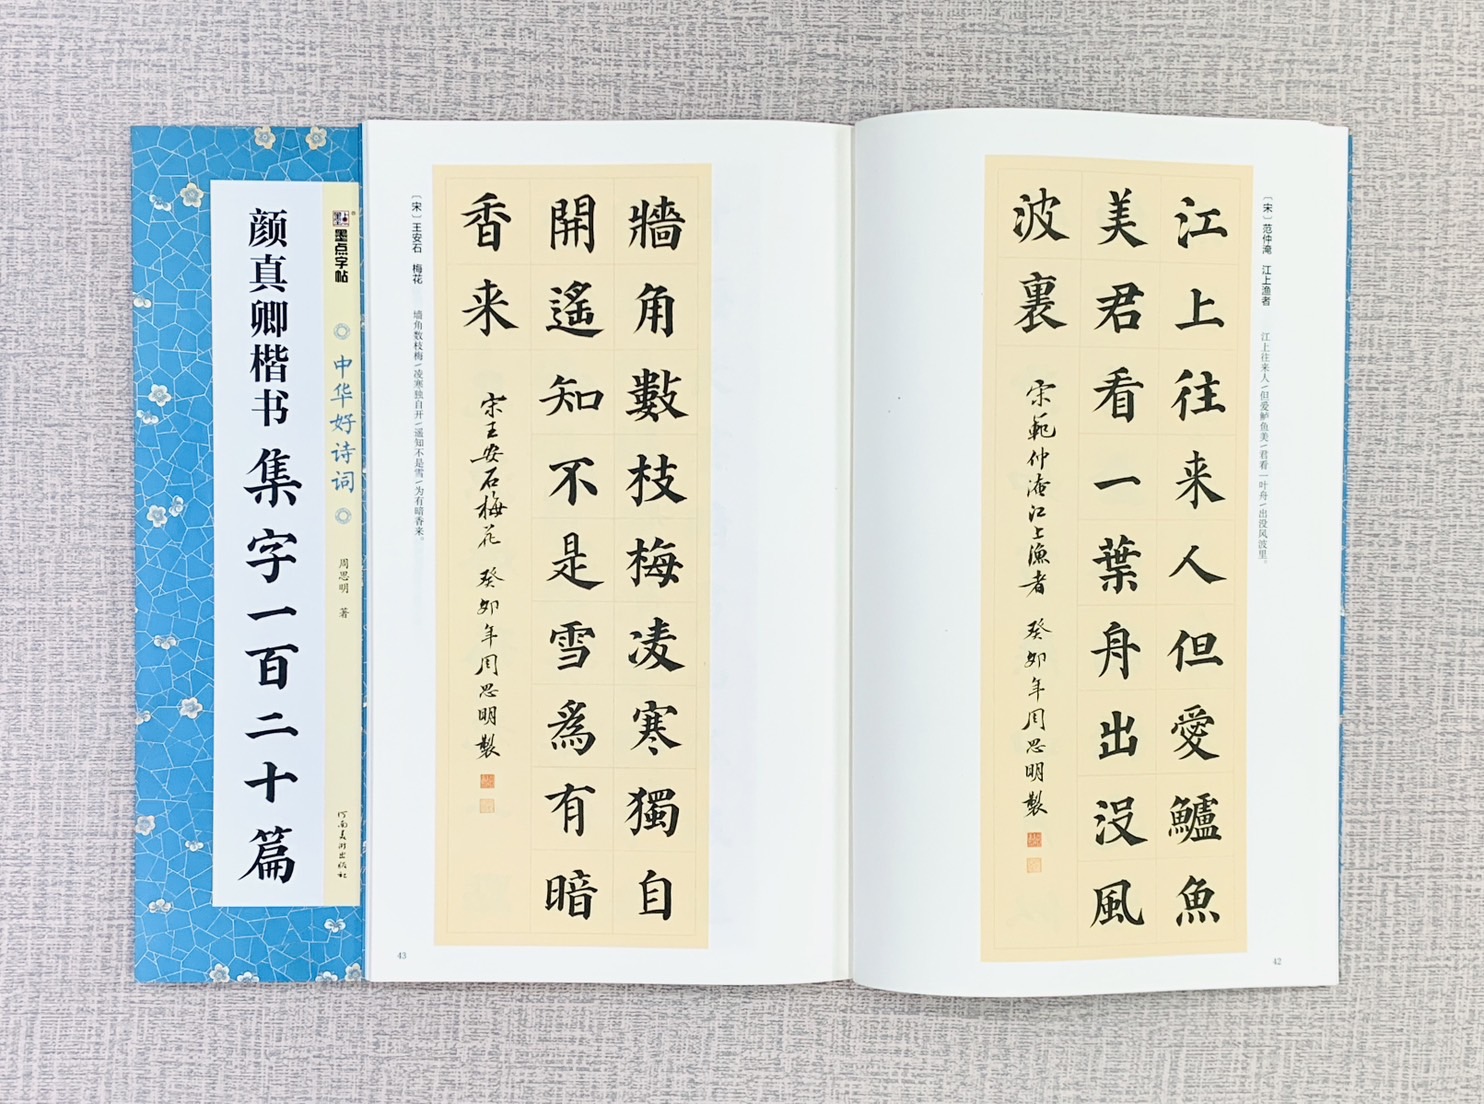 颜真卿楷书集字一百二十篇
墨点字帖
中华好诗词
周思明 著
河南美术出版社
〔宋〕范仲淹 江上渔者
江上往来人\但爱鲈鱼美\君看一叶舟\出没风波里。
江上往来人但愛鱸魚
美君看一葉舟出没風
波裏
宋範仲淹江上漁者 癸卯年周思明製
42
牆角數枝梅凌寒獨自
開遙知不是雪爲有暗
香来
宋王安石梅花 癸卯年周思明製
〔宋〕王安石 梅花
墙角数枝梅\凌寒独自开\遥知不是雪\为有暗香来。
43